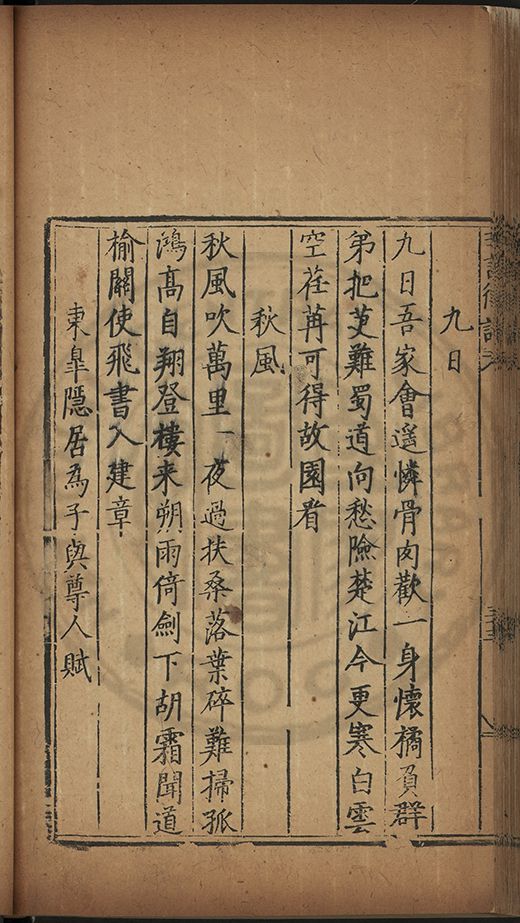 九日
九日吾家會遥憐骨肉歡一身懷橘負群
弟把萸難蜀道向愁險楚江今更寒白雲
空荏苒可得故園看
秋風
秋風吹萬里一夜過扶桑落葉碎難掃孤
鴻高自翔登樓来朔雨倚劍下胡霜聞道
榆關使飛書入建章
東皐隱居為子與尊人賦